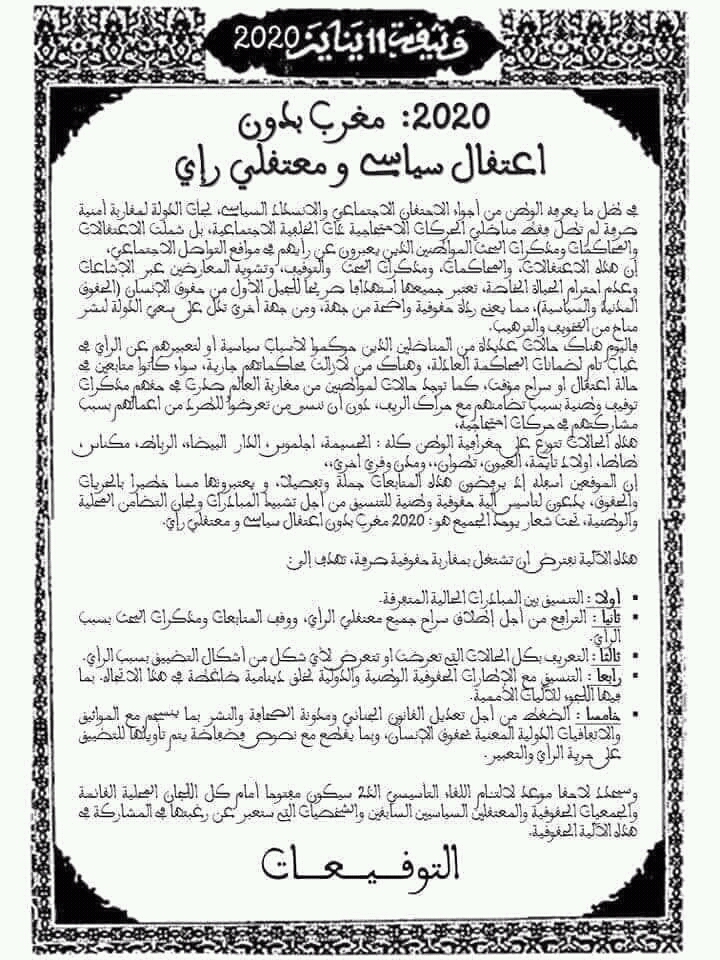 وثيقة 11 يناير 2020
2020: مغرب بدون
اعتقال سياسي و معتقلي رأي
في ظل ما يعرفه الوطن من أجواء الاحتقان الاجتماعي والانسداد السياسي، لجأت الدولة لمقاربة أمنية
صرفة لم تطل فقط مناضلي الحركات الاحتجاجية ذات الخلفية الاجتماعية، بل شملت الاعتقالات
والمحاكمات ومذكرات البحث المواطنين الذين يعبرون عن رأيهم في مواقع التواصل الاجتماعي،
إن هذه الاعتقالات، والمحاكمات، ومذكرات البحث والتوقيف، وتشويه المعارضين عبر الإشاعات
وعدم احترام الحياة الخاصة، تعتبر جميعها استهدافا صريحا للجيل الأول من حقوق الإنسان (الحقوق
المدنية والسياسية)، مما يعتبر ردة حقوقية واضحة من جهة، ومن جهة أخرى تدل على سعي الدولة لنشر
مناخ من التخويف والترهيب.
فاليوم هناك حالات عديدة من المناضلين الذين حكموا لأسباب سياسية أو لتعبيرهم عن الرأي في
غياب تام لضمانات المحاكمة العادلة، وهناك من لازالت محاكماتهم جارية، سواء كانوا متابعين في
حالة اعتقال او سراح مؤقت، كما توجد حالات لمواطنين من مغاربة العالم صدرت في حقهم مذكرات
توقيف وطنية بسبب تضامنهم مع حراك الريف، دون أن ننسى من تعرضوا للطرد من اعمالهم بسبب
مشاركتهم في حركات احتجاجية،
هذه الحالات تتوزع على جغرافية الوطن كله : الحسيمة، اجلموس، الدار البيضاء، الرباط، مكناس،
طاطا، اولاد تايمة، العيون، تطوان،، ومدن وقرى أخرى،،
إن الموقعين أسفله إذ يرفضون هذه المتابعات جملة وتفصيلا، و يعتبرونها مسا خطيرا بالحريات
والحقوق، يدعون لتأسيس آلية حقوقية وطنية للتنسيق من أجل تشبيك المبادرات ولجان التضامن المحلية
والوطنية، تحت شعار يوحد الجميع هو: 2020 مغرب بدون اعتقال سياسي و معتقلي رأي.
هذه الآلية نفترض ان تشتغل بمقاربة حقوقية صرفة، تهدف إلى:
▪ أولا : التنسيق بين المبادرات الحالية المتفرقة.
▪ ثانيا : الترافع من أجل إطلاق سراح جميع معتقلي الرأي، ووقف المتابعات ومذكرات البحث بسبب
الرأي.
▪ ثالثا : التعريف بكل الحالات التي تعرضت او تتعرض لأي شكل من أشكال التضييق بسبب الرأي.
▪ رابعا : التنسيق مع الإطارات الحقوقية الوطنية والدولية لخلق دينامية ضاغطة في هذا الاتجاه. بما
فيها اللجوء للآليات الأممية.
▪ خامسا : الضغط من أجل تعديل القانون الجنائي ومدونة الصحافة والنشر بما ينسجم مع المواثيق
والاتفاقيات الدولية المعنية بحقوق الإنسان، وبما يقطع مع نصوص فضفاضة يتم تأويلها للتضييق
على حرية الرأي والتعبير.
وسيحدد لاحقا موعد لالتئام اللقاء التأسيسي الذي سيكون مفتوحا أمام كل اللجان المحلية القائمة
والجمعيات الحقوقية والمعتقلين السياسيين السابقين والشخصيات التي ستعبر عن رغبتها في المشاركة في
هذه الآلية الحقوقية.
التوقيعات